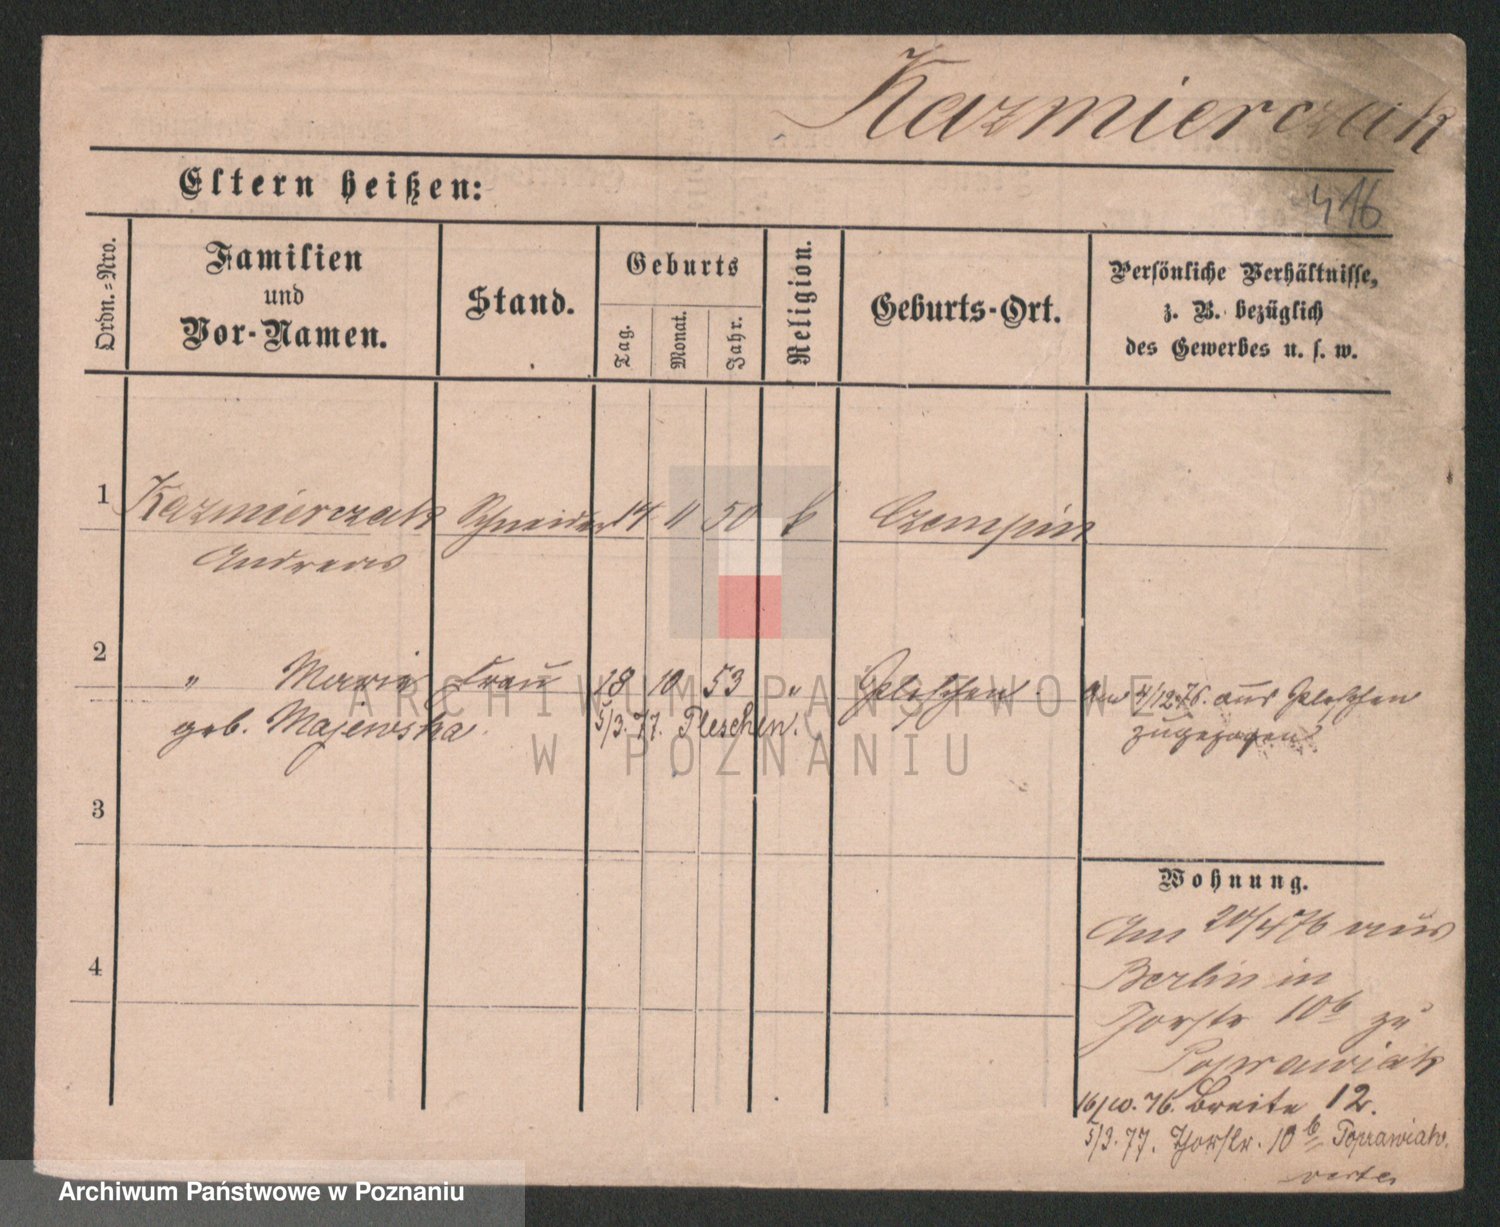 Kazmierczak
Eltern heißen:
416
Ordn.=Nro.
Familien
und
Vor-Namen.
Stand.
Geburts
Tag.
Monat.
Jahr.
Religion.
Geburts-Ort.
Persönliche Verhältnisse,
z. B. bezüglich
des Gewerbes u. s. w.
1 Kazmierczak Schneider 14 11 50 k Czempin
Andreas
2 " Marie Frau 18 10 53 " Pleschen Am 4/12.76. aus Pleschen
geb. Majewska 5/3.77. Pleschen. zugezogen
3
Wohnung.
Am 20/4 76 aus
4
Berlin in
Torstr 10b zu
Poprawiak
16/10.76. Breite 12.
5/3.77. Thorstr. 10b Poprawiak.
verte
ARCHIWUM PAŃSTWOWE
W POZNANIU
Archiwum Państwowe w Poznaniu